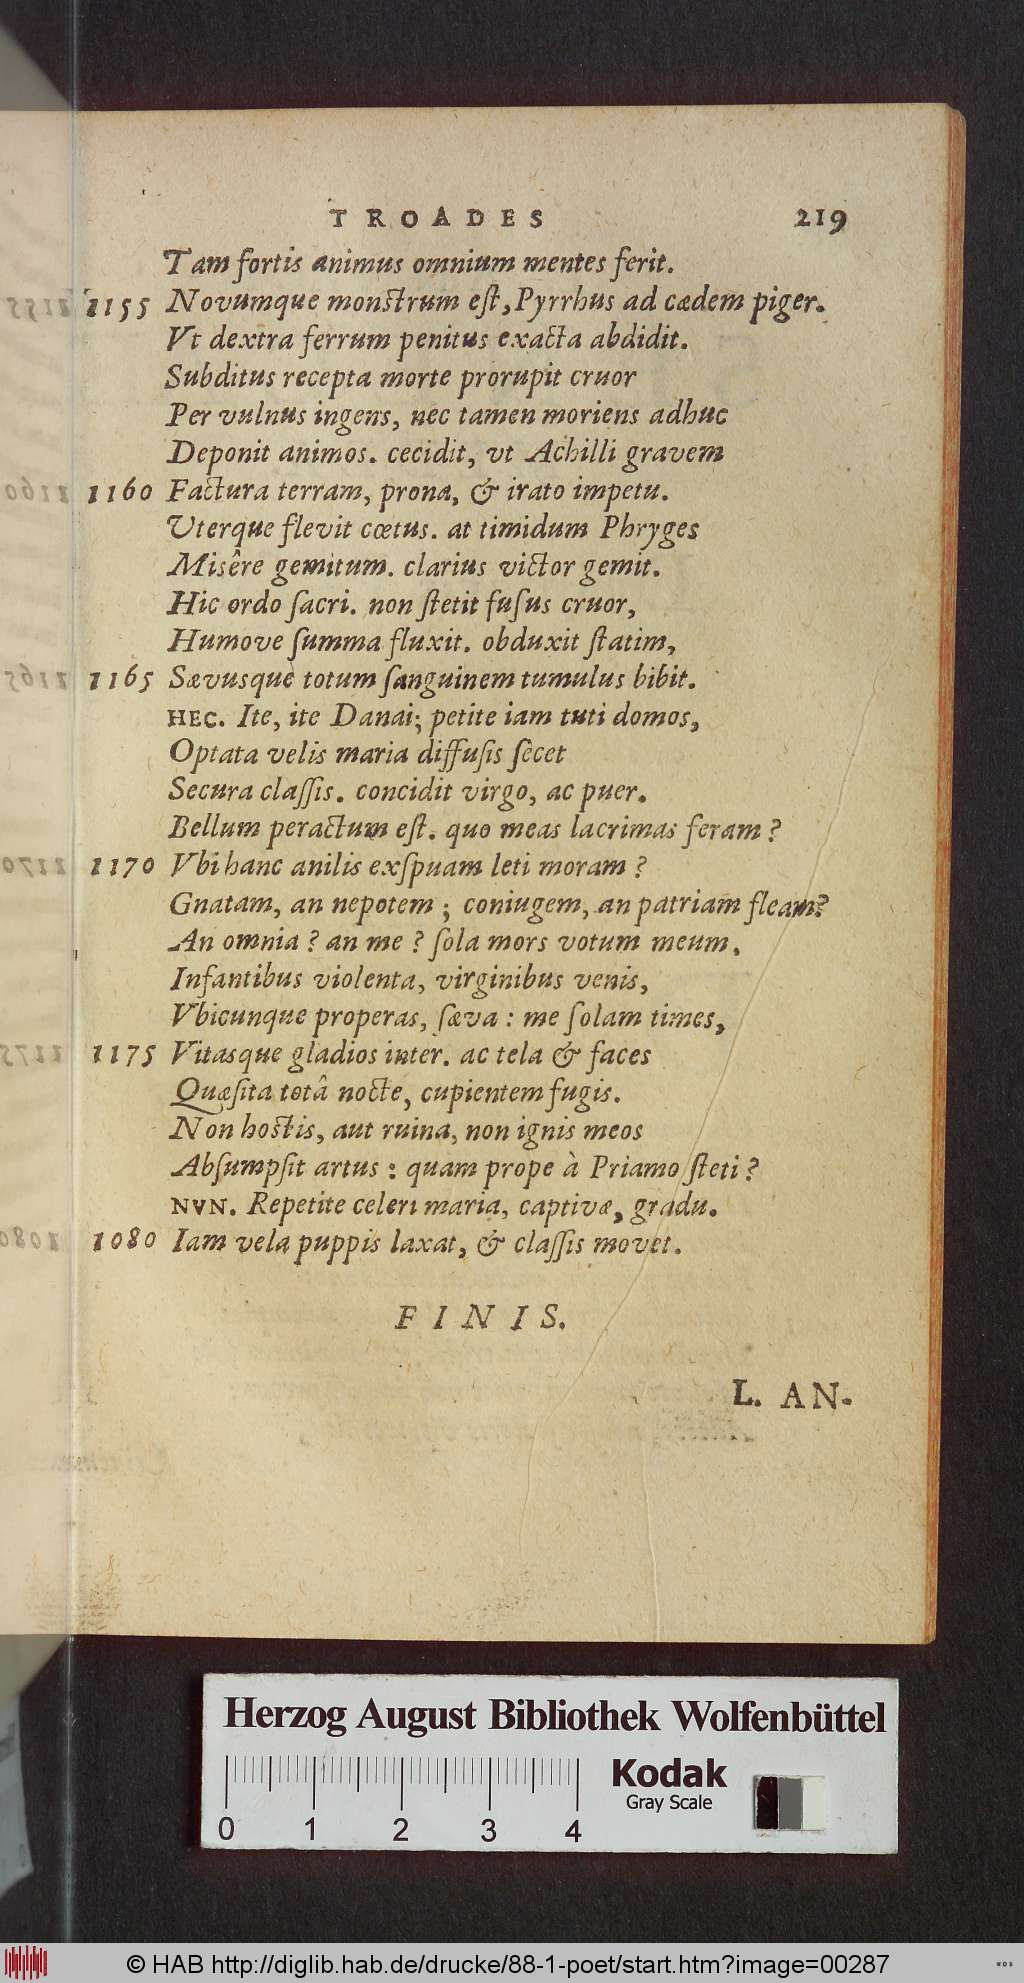 TROADES 219
Tam fortis animus omnium mentes ferit.
1155 Novumque monstrum eſt, Pyrrhus ad cædem piger.
Vt dextra ferrum penitus exacta abdidit.
Subditus recepta morte prorupit cruor
Per vulnus ingens, nec tamen moriens adhuc
Deponit animos. cecidit, vt Achilli gravem
1160 Factura terram, prona, & irato impetu.
Vterque flevit cœtus. at timidum Phryges
Misêre gemitum. clarius victor gemit.
Hic ordo ſacri. non ſtetit fuſus cruor,
Humove ſumma fluxit. obduxit ſtatim,
1165 Sævusque totum ſanguinem tumulus bibit.
HEC. Ite, ite Danai; petite iam tuti domos,
Optata velis maria diffuſis ſecet
Secura claſſis. concidit virgo, ac puer.
Bellum peractum eſt. quo meas lacrimas feram?
1170 Vbi hanc anilis exſpuam leti moram?
Gnatam, an nepotem; coniugem, an patriam fleam?
An omnia? an me? ſola mors votum meum.
Infantibus violenta, virginibus venis,
Vbicunque properas, ſæva: me ſolam times,
1175 Vitasque gladios inter. ac tela & faces
Quæſita totâ nocte, cupientem fugis.
Non hostis, aut ruina, non ignis meos
Abſumpſit artus: quam prope à Priamo ſteti?
NVN. Repetite celeri maria, captivæ, gradu.
1080 Iam vela puppis laxat, & claſſis movet.
FINIS.
L. AN-
Herzog August Bibliothek Wolfenbüttel
Kodak
Gray Scale
0 1 2 3 4
© HAB http://diglib.hab.de/drucke/88-1-poet/start.htm?image=00287